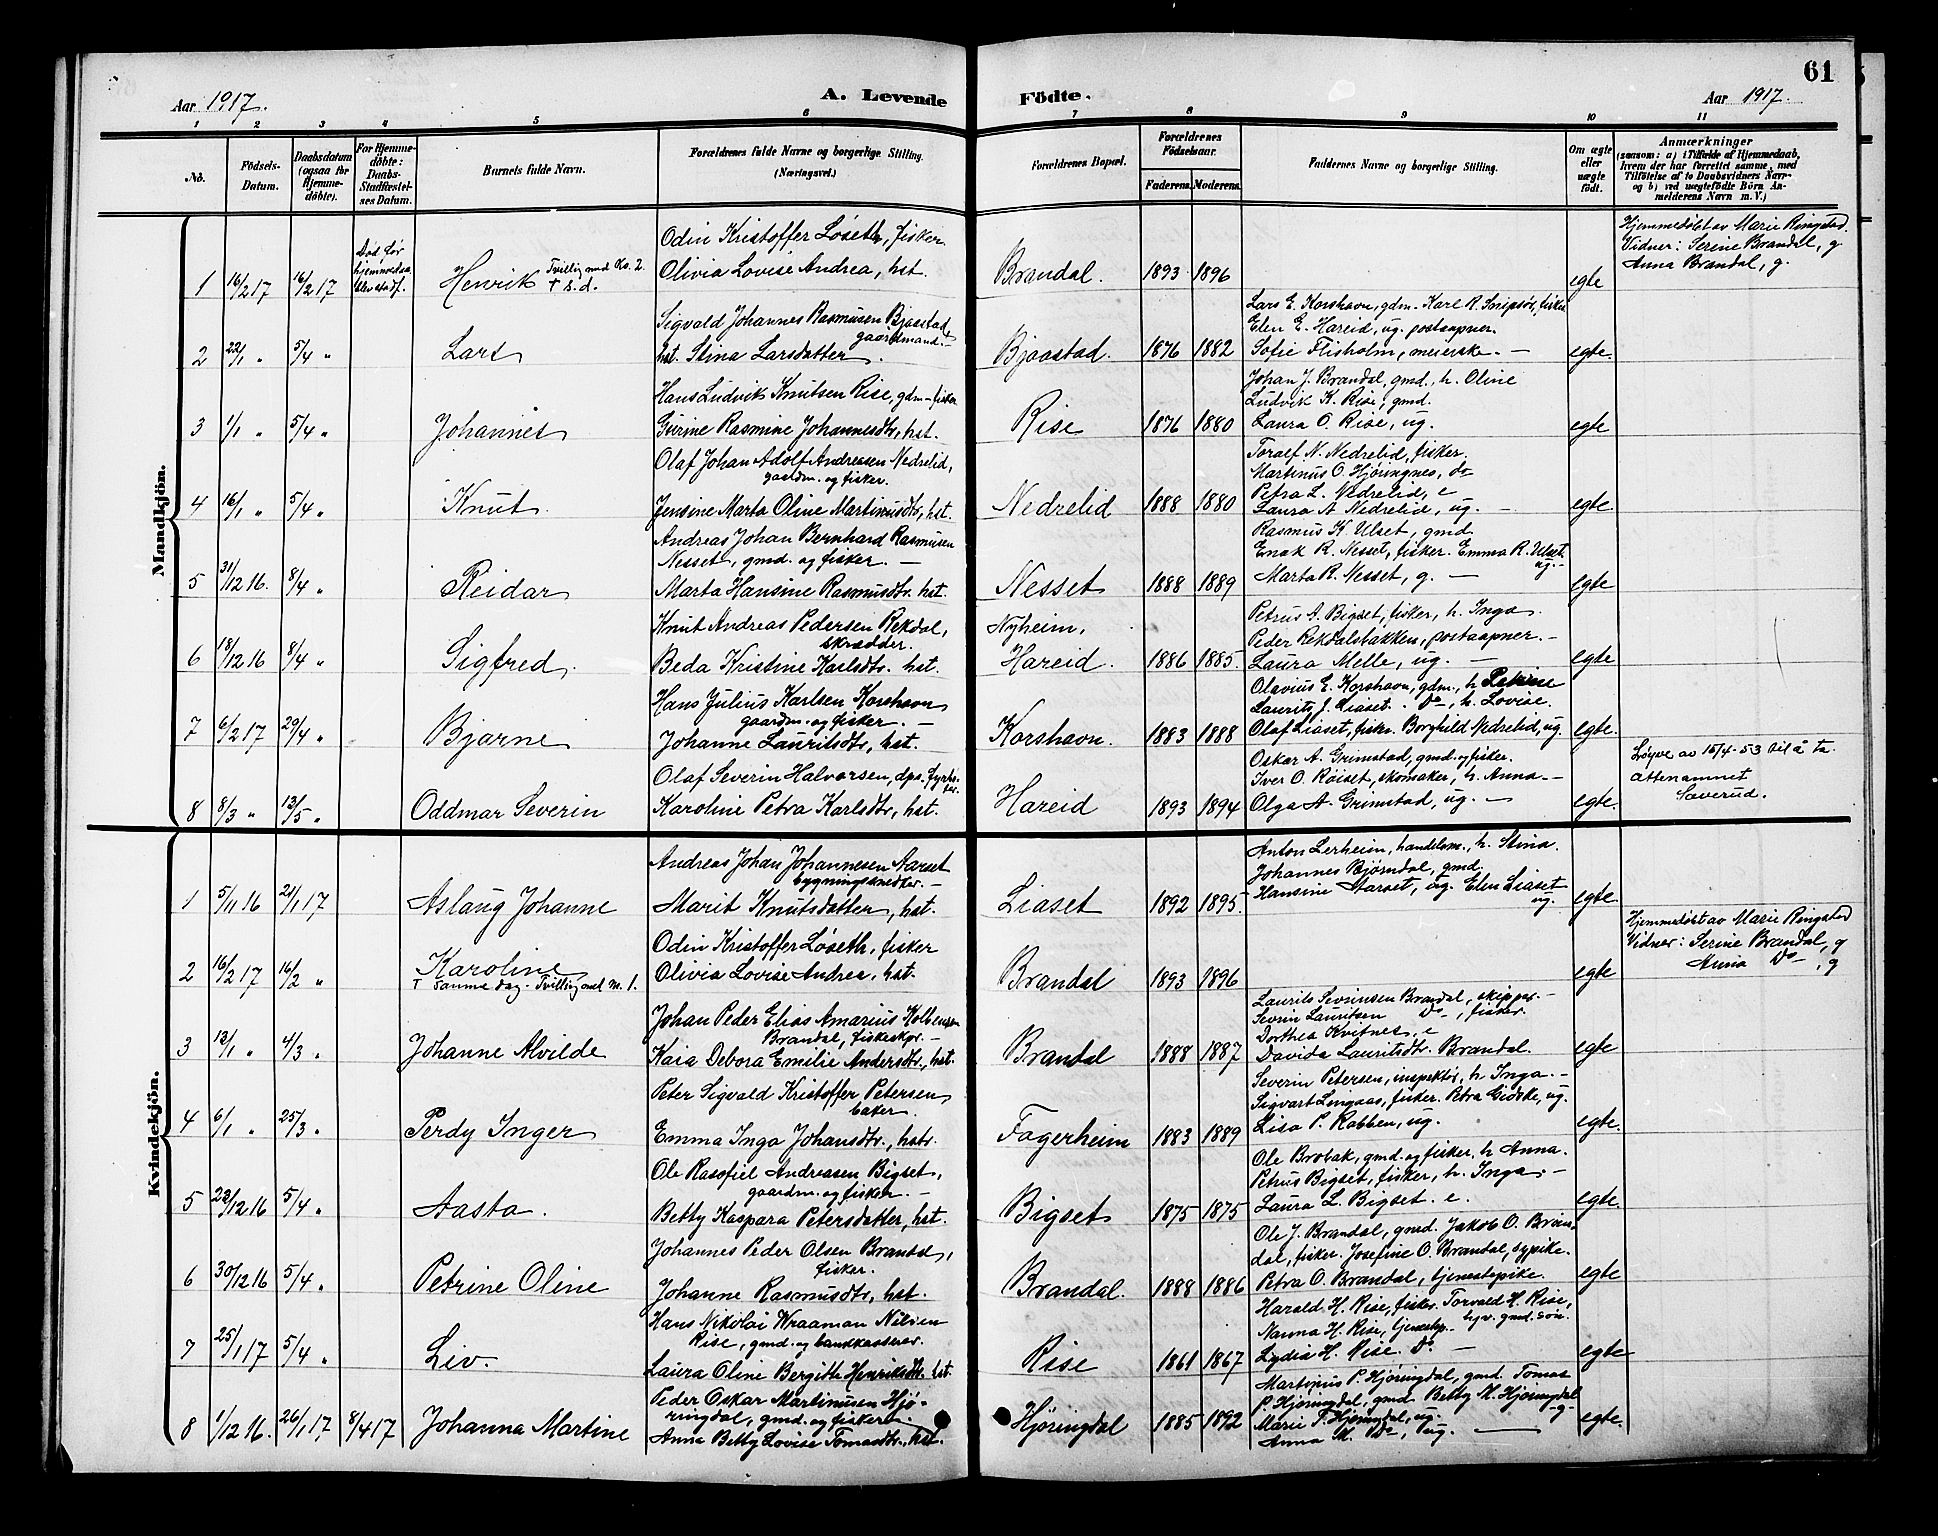 61
Aar 1917.
A. Levende Födte.
Aar 1917.
1 2 3 4 5 6 7 8 9 10 11
No.
Födsels-Datum.
Daabsdatum (ogsaa for Hjemme-döbte).
For Hjemme-döbte: Daabs-Stadfæstel-ses Datum.
Barnets fulde Navn.
Forældrenes fulde Navne og borgerlige Stilling. (Næringsvei.)
Forældrenes Bopæl.
Forældrenes Födselsaar.
Faderens. Moderens.
Faddernes Navne og borgerlige Stilling.
Om ægte eller uægte födt.
Anmærkninger
(saasom: a) i Tilfælde af Hjemmedaab,
hvem der har forrettet samme, med
Tilföielse af to Daabsvidners Navn-
og b) ved uægtefödte Börn An-
melderens Navn m. V.)
Mandkjön.
1 16/2 17 16/2 17 Død før hjemmedaa. blev stadf.
Henrik Tvilling med Kv. 2. † s.d.
Odin Kristoffer Løseth, fisker
Olivia Lovise Andrea, hst.
Brandal. 1893 1896 egte
Hjemmedøbt av Marie Ringstad.
Vidner: Serine Brandal, g.
Anna Brandal, g.
2 22/1 " 5/4 " Lars
Sigvald Johannes Rasmusen Bjaastad, gaardmand.
hst. Stina Larsdatter.
Bjaastad. 1876 1882
Lars E. Korshavn, gdm. Karl R. Snipsør, fisker
Elen E. Hareid, ug. postaapner.
Sofie Flisholm, meierske. — egte.
3 1/1 " 5/4 " Johannes
Hans Ludvik Knutsen Rise, gdm - fisker
Gurine Rasmine Johannesdtr, hst.
Rise 1876 1880
Johan J. Brandal, gmd., h. Oline
Ludvik K. Rise, gmd.
Laura O. Rise, ug. egte
4 16/1 " 5/4 " Knut.
Olaf Johan Adolf Andreasen Nedrelid,
gaardm. og fisker.
Jensine Marta Oline Martinusdtr, hst.
Nedrelid 1888 1880
Toralf N. Nedrelid, fisker.
Martinus O Hjøringnes, do
Petra L. Nedrelid, e
Laura A Nedrelid, ug. — egte.
5 31/12 16. 8/4 " Reidar
Andreas Johan Bernhard Rasmusen
Nesset, gmd. og fisker. —
Marta Hansine Rasmusdtr. hst.
Nesset 1888 1889
Rasmus K. Ulset, gmd
Enok R. Nesset, fisker. Emma R. Ulset ug.-
Marta R. Nesset, g. — egte
6 18/12 16 8/4 " Sigfred.
Knut Andreas Pedersen Rekdal,
skrædder.
Beda Kristine Karlsdtr. hst.
Nyheim, Hareid. 1886 1885.
Petrus A. Bigset, fisker, h. Inga.
Peder Rekdalsbakken, postaapner. —
Laura Melle, ug. — egte
7 6/2 17 29/4 " Bjarne
Hans Julius Karlsen Korshavn
gaardm. og fisker. —
Johanne Lauritsdtr, hst.
Korshavn. 1883 1888
Olavius E. Korshavn, gdm., h Petrine
Laurits J. Liaset. Do, h. Lovise.
Olaf Liaset, fisker. Borghild Nedrelid, ug. egte.
8 8/3 " 13/5 " Oddmar Severin
Olaf Severin Halvorsen,
Karoline Petra Karlsdtr, hst.
Hareid 1893 1894
Oskar A. Grimstad, gmd. og fisker.
Iver O. Røiset, skomaker, h. Anna.—
Olga A. Grimstad, ug. — egte.
Løyve av 15/4-53 til å ta
attenamnet
Saverud.
Kvindekjön.
1 5/11 16 21/1 17 Aslaug Johanne
Andreas Johan Johannesen Aarset
bygningssnedker. —
Marit Knutsdatter, hst.
Liaset 1892 1895.
Anton Lerheim, handelsm., h. Stina.
Johannes Bjørndal, gmd.
Hansine Aarset, ug. Elen Liaset ug. egte.
2 16/2 17 16/2 " Karoline
† samme dag. Tvilling med m. 1.
Odin Kristoffer Løseth, fisker
Olivia Lovise Andrea, hst.
Brandal 1893 1896 egte
Hjemmedøbt av Marie Ringstad
Vidner: Serine Brandal, g
Anna Do, g
3 12/1 " 4/3 " Johanne Alvilde
Johan Peder Elias Amarius Kolbensen
Brandal, fiskeskpr. —
Kaia Debora Emilie Andersdtr., hst.
Brandal 1888 1887
Laurits Sevrinsen Brandal, skipper. —
Sevrin Lauritsen Do, fisker.
Dorthea Kvitnes, e
Davida Lauritsdtr. Brandal. egte
4 6/1 " 25/3 " Perdy Inger
Peter Sigvald Kristoffer Petersen,
Emma Inga Johansdtr., hstr.
Fagerheim 1883 1889
Severin Petersen, inspektør, h. Inga. —
Sigvart Lingaas, fisker. Petra Giørke, ug.
Lisa P. Rabben, ug. egte.
5 22/12 16 5/4 " Aasta.
Ole Rasofiel Andreasen Bigset,
gaardm. og fisker. —
Betty Kaspara Petersdatter, hst.
Bigset 1875 1875
Ole Brobak, gmd. og fisker, h. Anna.
Petrus Bigset, fisker, h. Inga. —
Laura L. Bigset. e. egte
6 30/12 16 5/4 " Petrine Oline
Johannes Peder Olsen Brandal,
fisker.
Johanne Rasmusdtr, hst.
Brandal. 1888 1886
Ole J. Brandal, gmd. Jakob O. Bran-
dal, fisker. Josefine O. Brandal, sypike.
Petra O. Brandal, tjenestepike. egte
7 25/1 17 5/4 " Liv.
Hans Nikolai Kraaman Nilsen
Rise, gmd. og bankkasserer.
Laura Oline Bergitte Henriksdtr. hst.
Rise 1861 1867
Harald H. Rise, fisker. Torvald H. Rise,
hjv. gmd. søn.
Nanna H. Rise, tjenestep.
Lydia H. Rise. Do. — egte
8 1/12 16. 26/1 17 8/4 17 Johanna Martine
Peder Oskar Martinusen Hjø-
ringdal, gmd. og fisker.
Anna Betty Lovise Tomasdtr., hst.
Hjøringdal 1885 1892
Martinus P. Hjøringdal, gmd. Tomas
P. Hjøringdal, gmd Betty M. Hjøringdal g.
Marie T. Hjøringdal, ug.
Anna M. Do, ug. — egte.